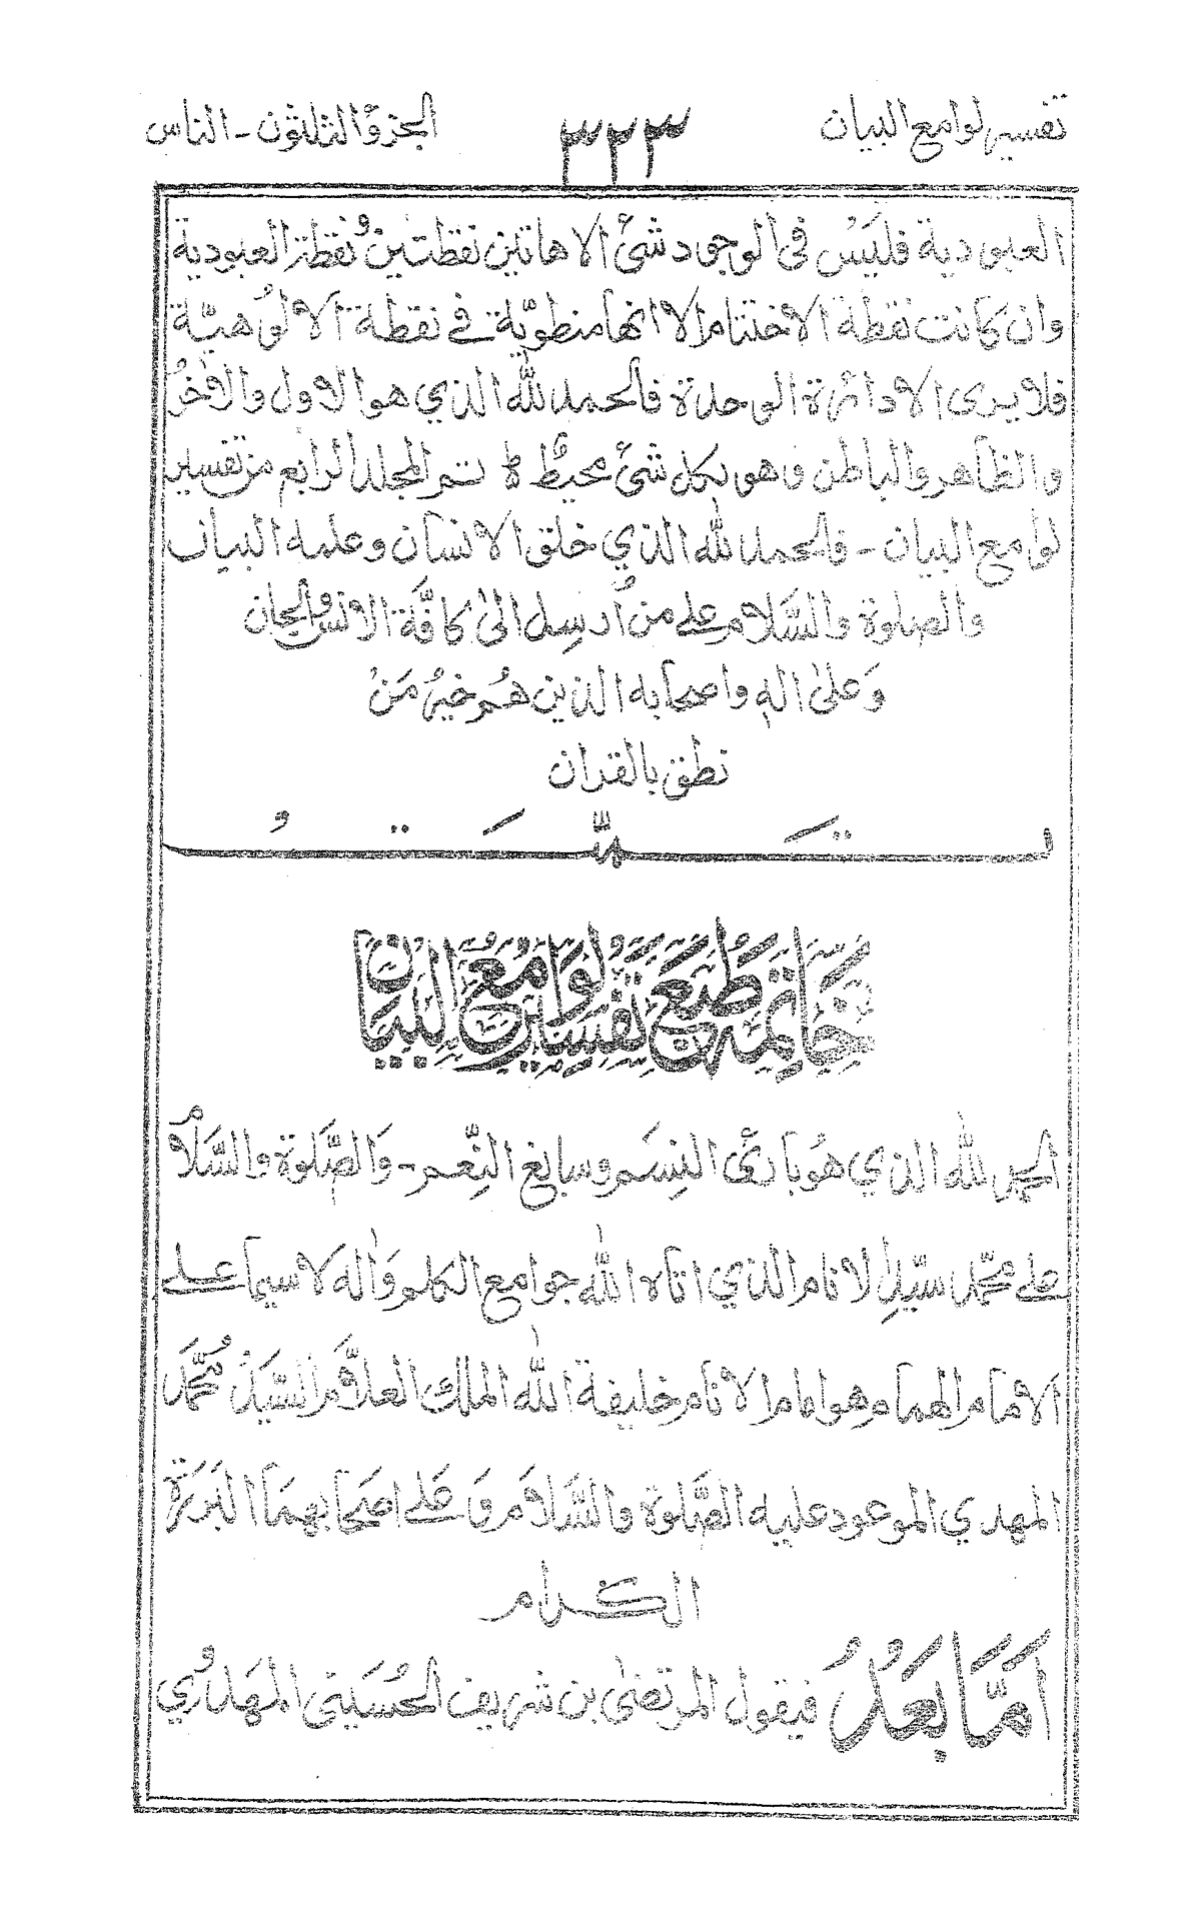 تفسير لوامع البيان ٣٢٣ الجزؤ الثلثون - الناس
العبودية فليَسَ في الوجود شئ الا هاتين نقطتين ونقطة العبودية
وان كانت نقطة الاختتام الا انها منطويّة في نقطة الالوُهيّة
فلا يرى الا دائرة الوحدة فالحمد لله الذي هو الاول والاٰخرُ
والظاهر والباطن وهو بكل شئ محيطٌ تم المجلد الرابع من تفسير
لوامع البيان - فالحمد لله الذي خلق الانسان وعلمه البيان
والصلوة والسَّلام على من اُرسِل الىٰ كافَّة الانس والجان
وَعلىٰ اله واصحابه الذين هُم خيرُ مَنْ
نطق بالقران
تَمَّتُ
خَاتِمَة طَبع تَفسير لوَامعُ البيَان
الحمد لله الذي هُو بارئُ النِسَم وسابغ النِّعم - وَالصَّلوة والسَّلامُ
على محمّد سيّدِ الانام الذي اتاه الله جوامع الكلم وَاٰله لا سيما على
الامام الهمام وهو امام الانام خليفة الله الملك العلاَّم السَّيدُ مُحمَّد
المهدي الموعود عليه الصَّلوة والسَّلام وَ على اصحابهما البَررَة
الكرام
اَمَّا بَعدُ فيقول المرتضىٰ بن شريف الحُسَيني المَهدَوُي